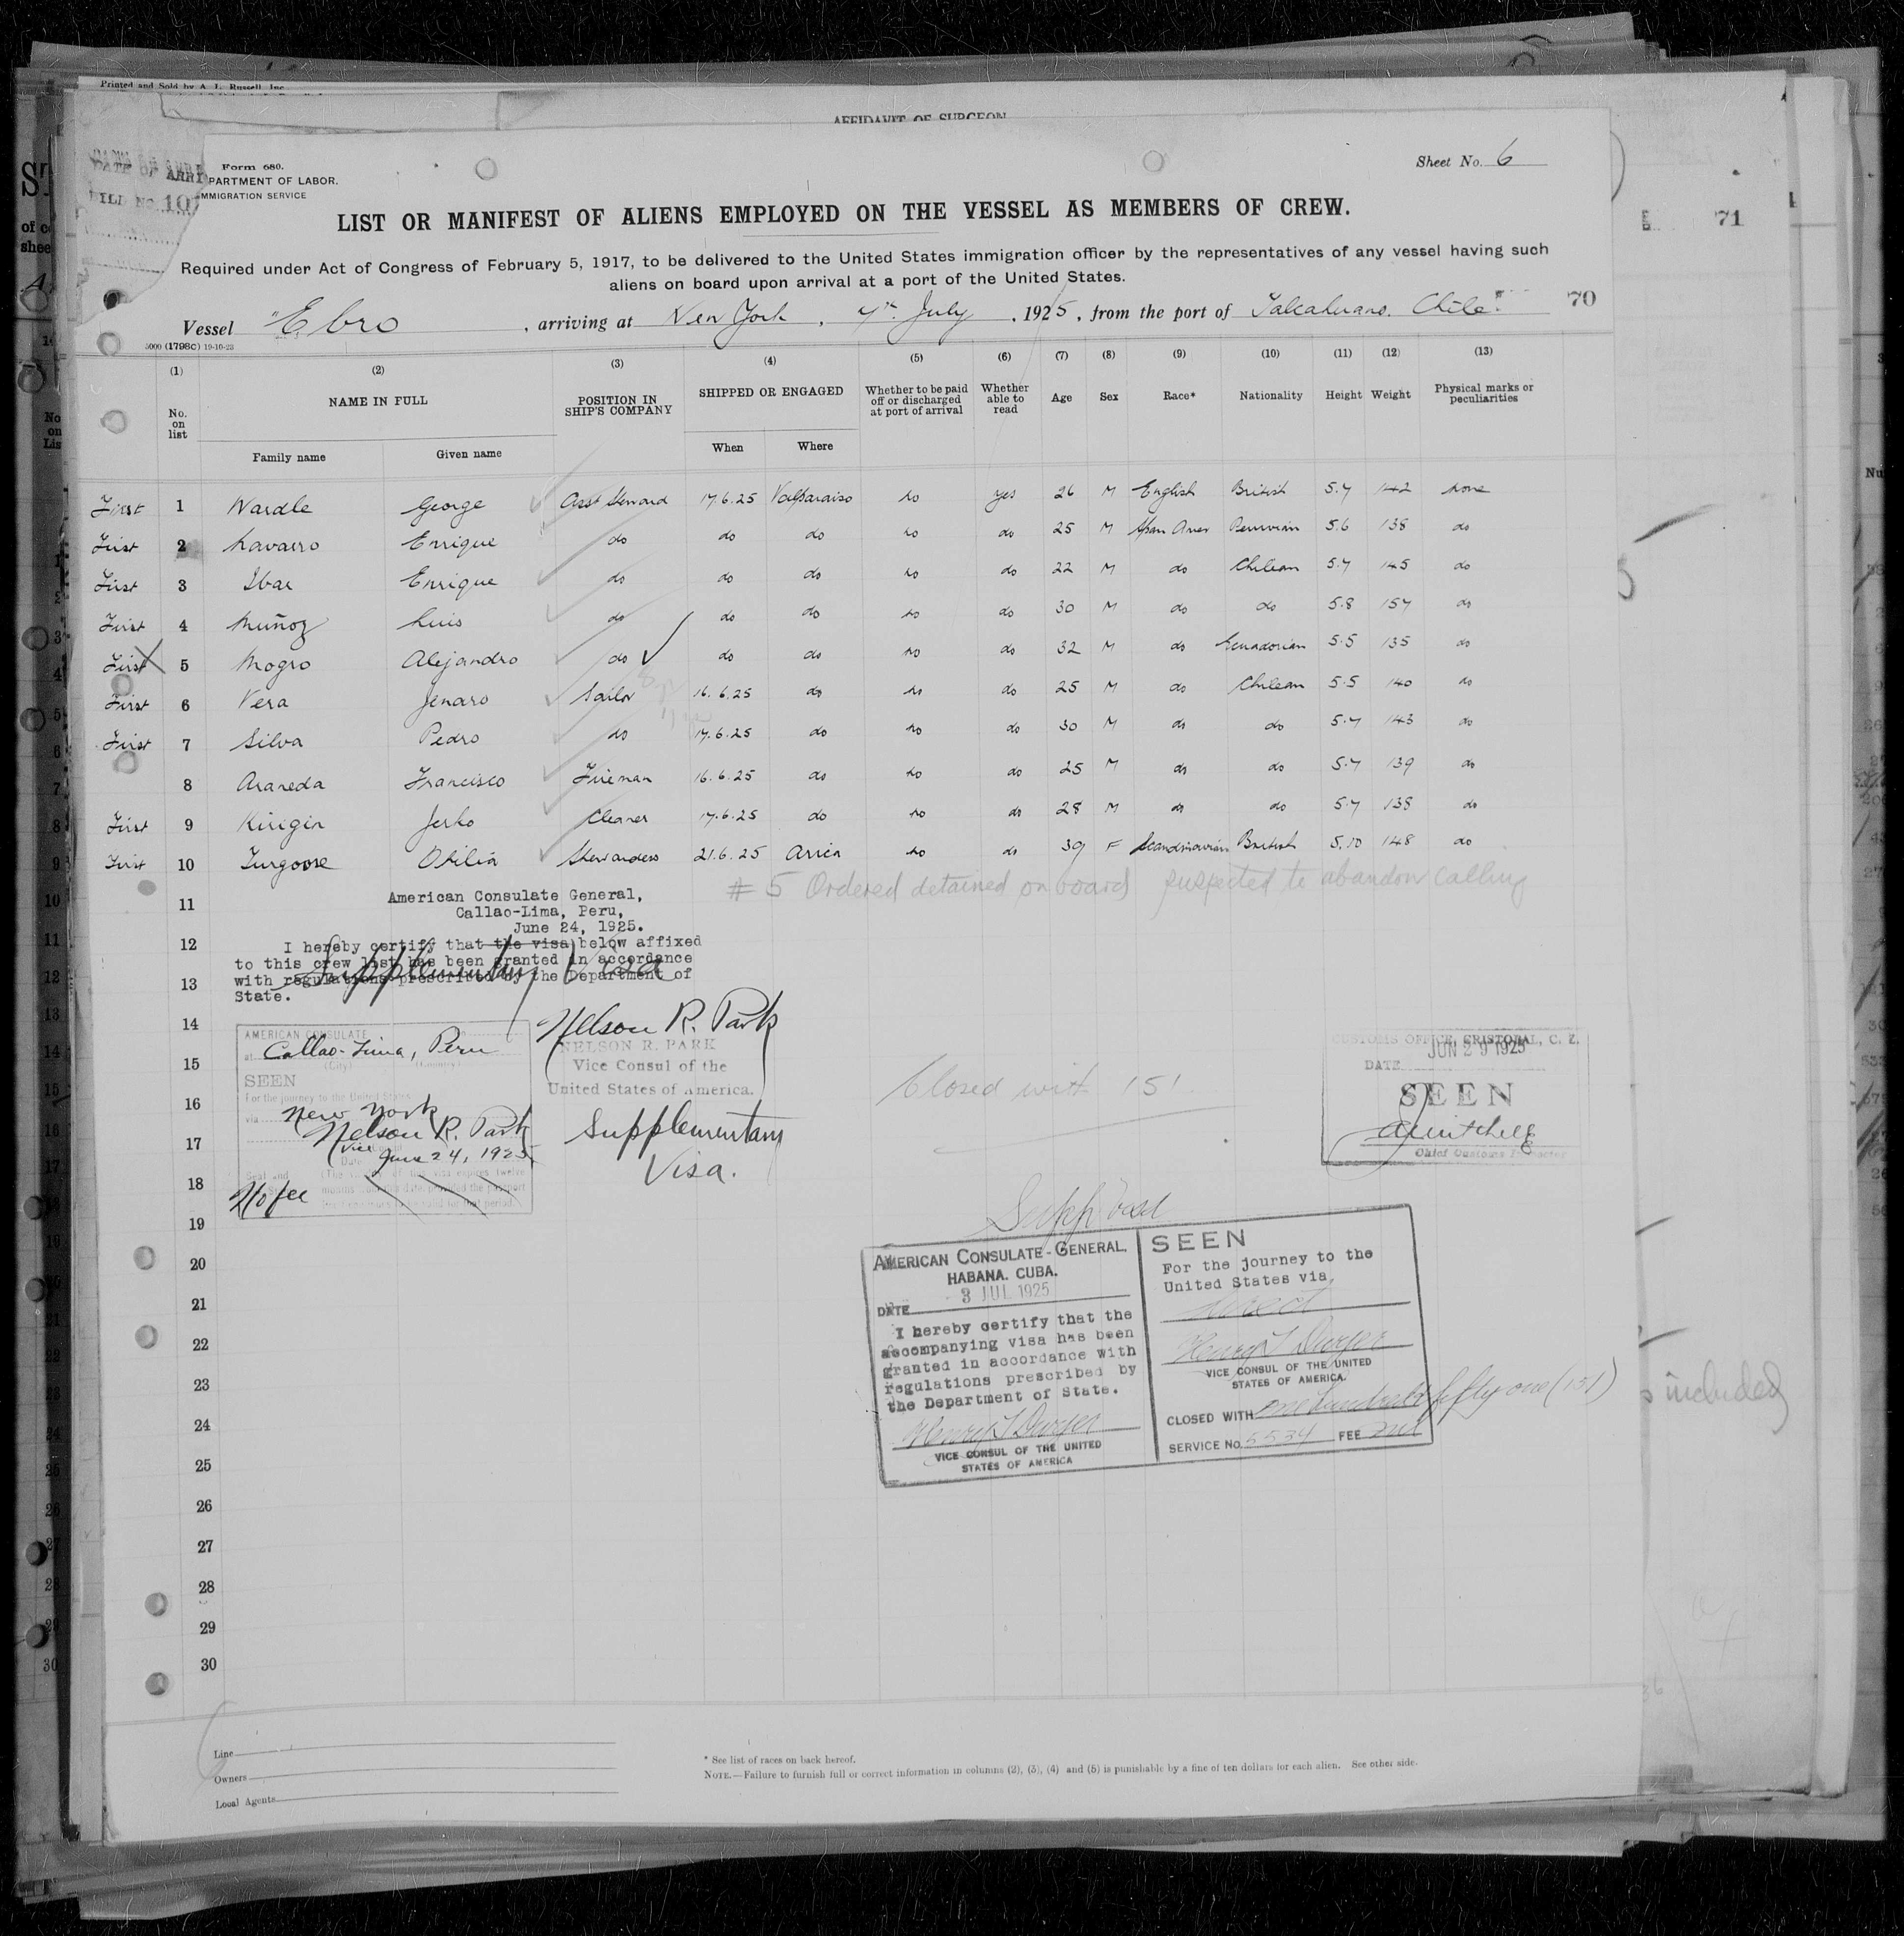 Printed and Sold by A. L. Russell, Inc.
AFFIDAVIT OF SURGEON
DATE OF ARRI
FILE No. 107
Form 680.
PARTMENT OF LABOR.
MMIGRATION SERVICE
Sheet No. 6
71
LIST OR MANIFEST OF ALIENS EMPLOYED ON THE VESSEL AS MEMBERS OF CREW.
Required under Act of Congress of February 5, 1917, to be delivered to the United States immigration officer by the representatives of any vessel having such
aliens on board upon arrival at a port of the United States.
70
Vessel "Ebro , arriving at New York , 7th July , 1925, from the port of Talcahuano. Chile.
5000 (1798c) 19-10-23
(1) (2) (3) (4) (5) (6) (7) (8) (9) (10) (11) (12) (13)
No. on list NAME IN FULL POSITION IN SHIP'S COMPANY SHIPPED OR ENGAGED Whether to be paid off or discharged at port of arrival Whether able to read Age Sex Race* Nationality Height Weight Physical marks or peculiarities
Family name Given name When Where
First 1 Wardle George Asst Steward 17.6.25 Valparaiso no yes 26 M English British 5.7 142 none
First 2 Navarro Enrique do do do no do 25 M Span Amer Peruvian 5.6 138 do
First 3 Ibar Enrique do do do no do 22 M do Chilean 5.7 145 do
First 4 Muñoz Luis do do do no do 30 M do do 5.8 157 do
First 5 Mogro Alejandro do do do no do 32 M do Ecuadorian 5.5 135 do
First 6 Vera Jenaro Sailor 16.6.25 do no do 25 M do Chilean 5.5 140 do
First 7 Silva Pedro do 17.6.25 do no do 30 M do do 5.7 143 do
8 Araneda Francisco Fireman 16.6.25 do no do 25 M do do 5.7 139 do
First 9 Kirigin Jerko Cleaner 17.6.25 do no do 28 M do do 5.7 138 do
First 10 Turgoose Otilia Stewardess 21.6.25 Arica no do 39 F Scandinavian British 5.10 148 do
# 5 Ordered detained on board suspected to abandon calling
11
12
13
14
15
16
17
18
19
20
21
22
23
24
25
26
27
28
29
30
American Consulate General,
Callao-Lima, Peru,
June 24, 1925.
I hereby certify that the visa below affixed
to this crew list has been granted in accordance
with regulations prescribed by the Department of
State.
Supplementary Visa
Nelson R. Park
NELSON R. PARK
Vice Consul of the
United States of America.
Supplementary
Visa.
AMERICAN CONSULATE
at Callao-Lima, Peru
(City) (Country)
SEEN
For the journey to the United States
via New York
Nelson R. Park
Vice
Date June 24, 1925
No fee
Closed with 151
CUSTOMS OFFICE, CRISTOBAL, C. Z.
DATE JUN 29 1925
SEEN
Chief Customs Inspector
Supp visa
AMERICAN CONSULATE-GENERAL.
HABANA. CUBA.
DATE 3 JUL 1925
I hereby certify that the
accompanying visa has been
granted in accordance with
regulations prescribed by
the Department of State.
Henry T Dwyer
VICE CONSUL OF THE UNITED
STATES OF AMERICA
SEEN
For the journey to the
United States via
direct
Henry T Dwyer
VICE CONSUL OF THE UNITED
STATES OF AMERICA.
CLOSED WITH one hundred & fifty one (151)
SERVICE No. 5534 FEE nil
included
Line
Owners
Local Agents
* See list of races on back hereof.
NOTE.—Failure to furnish full or correct information in columns (2), (3), (4) and (5) is punishable by a fine of ten dollars for each alien. See other side.